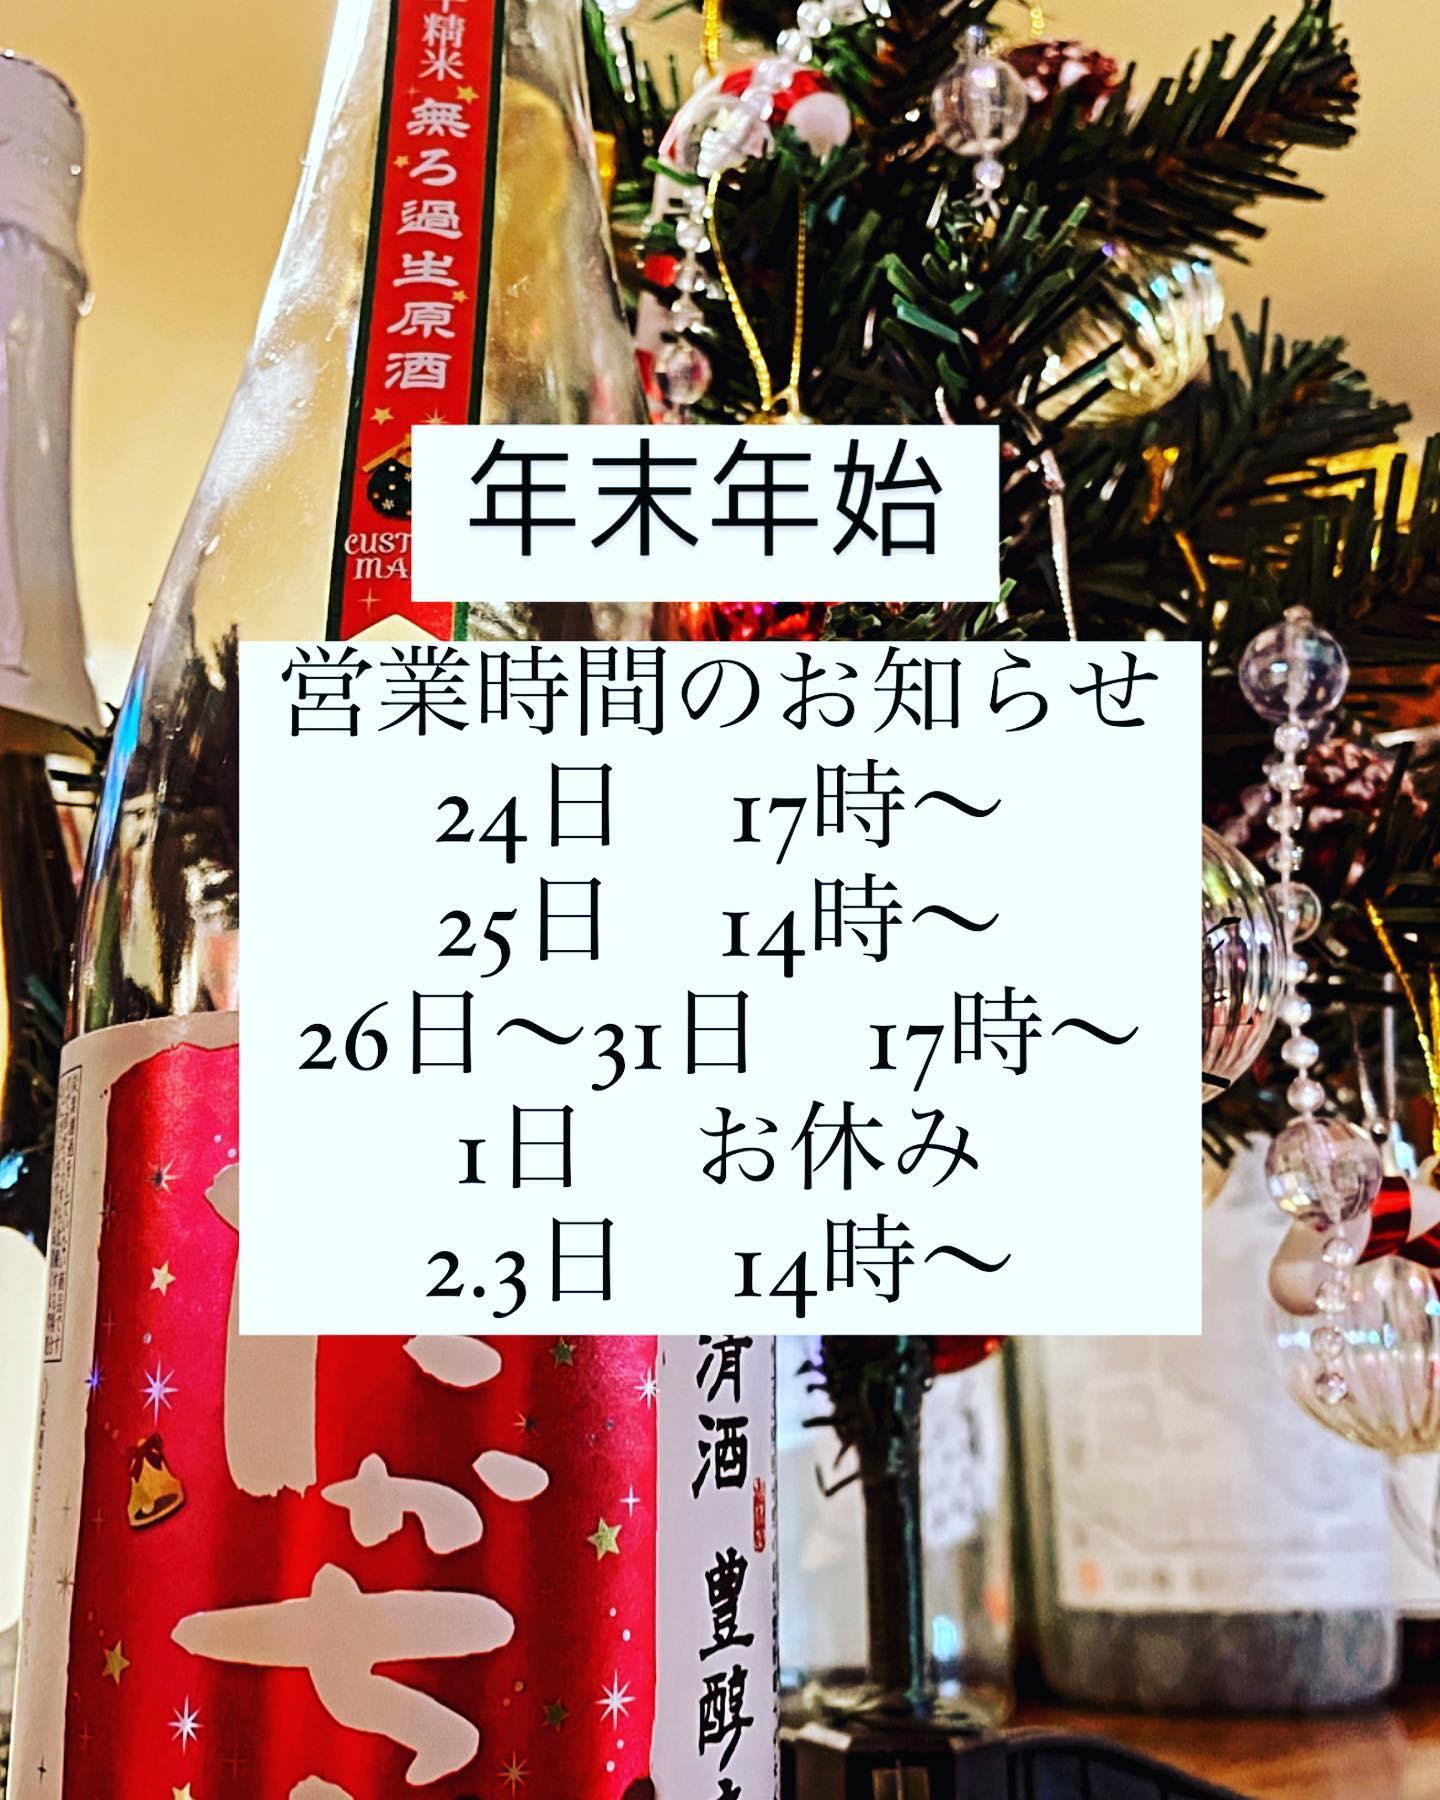 精米 無ろ過生原酒
年末年始
営業時間のお知らせ
24日 17時〜
25日 14時〜
26日〜31日 17時〜
1日 お休み
2.3日 14時〜
清酒 豊醇